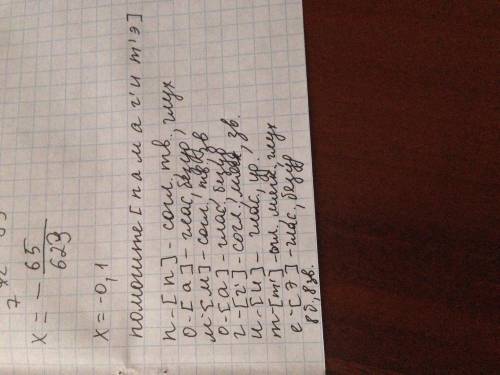 x = - 65/629
x = -0,1
помогите [памаг'ит'э]
п-[п]-согл., тв., глух
о-[а]-глас, безур,
м-[м]-согл, тв, зв
о-[а]-глас, безур
г-[г']-согл., мягк, зв.
и-[и]-глас, ур.
т-[т']-согл. мягк, глух
е-[э]-глас, безур
8б, 8зв.